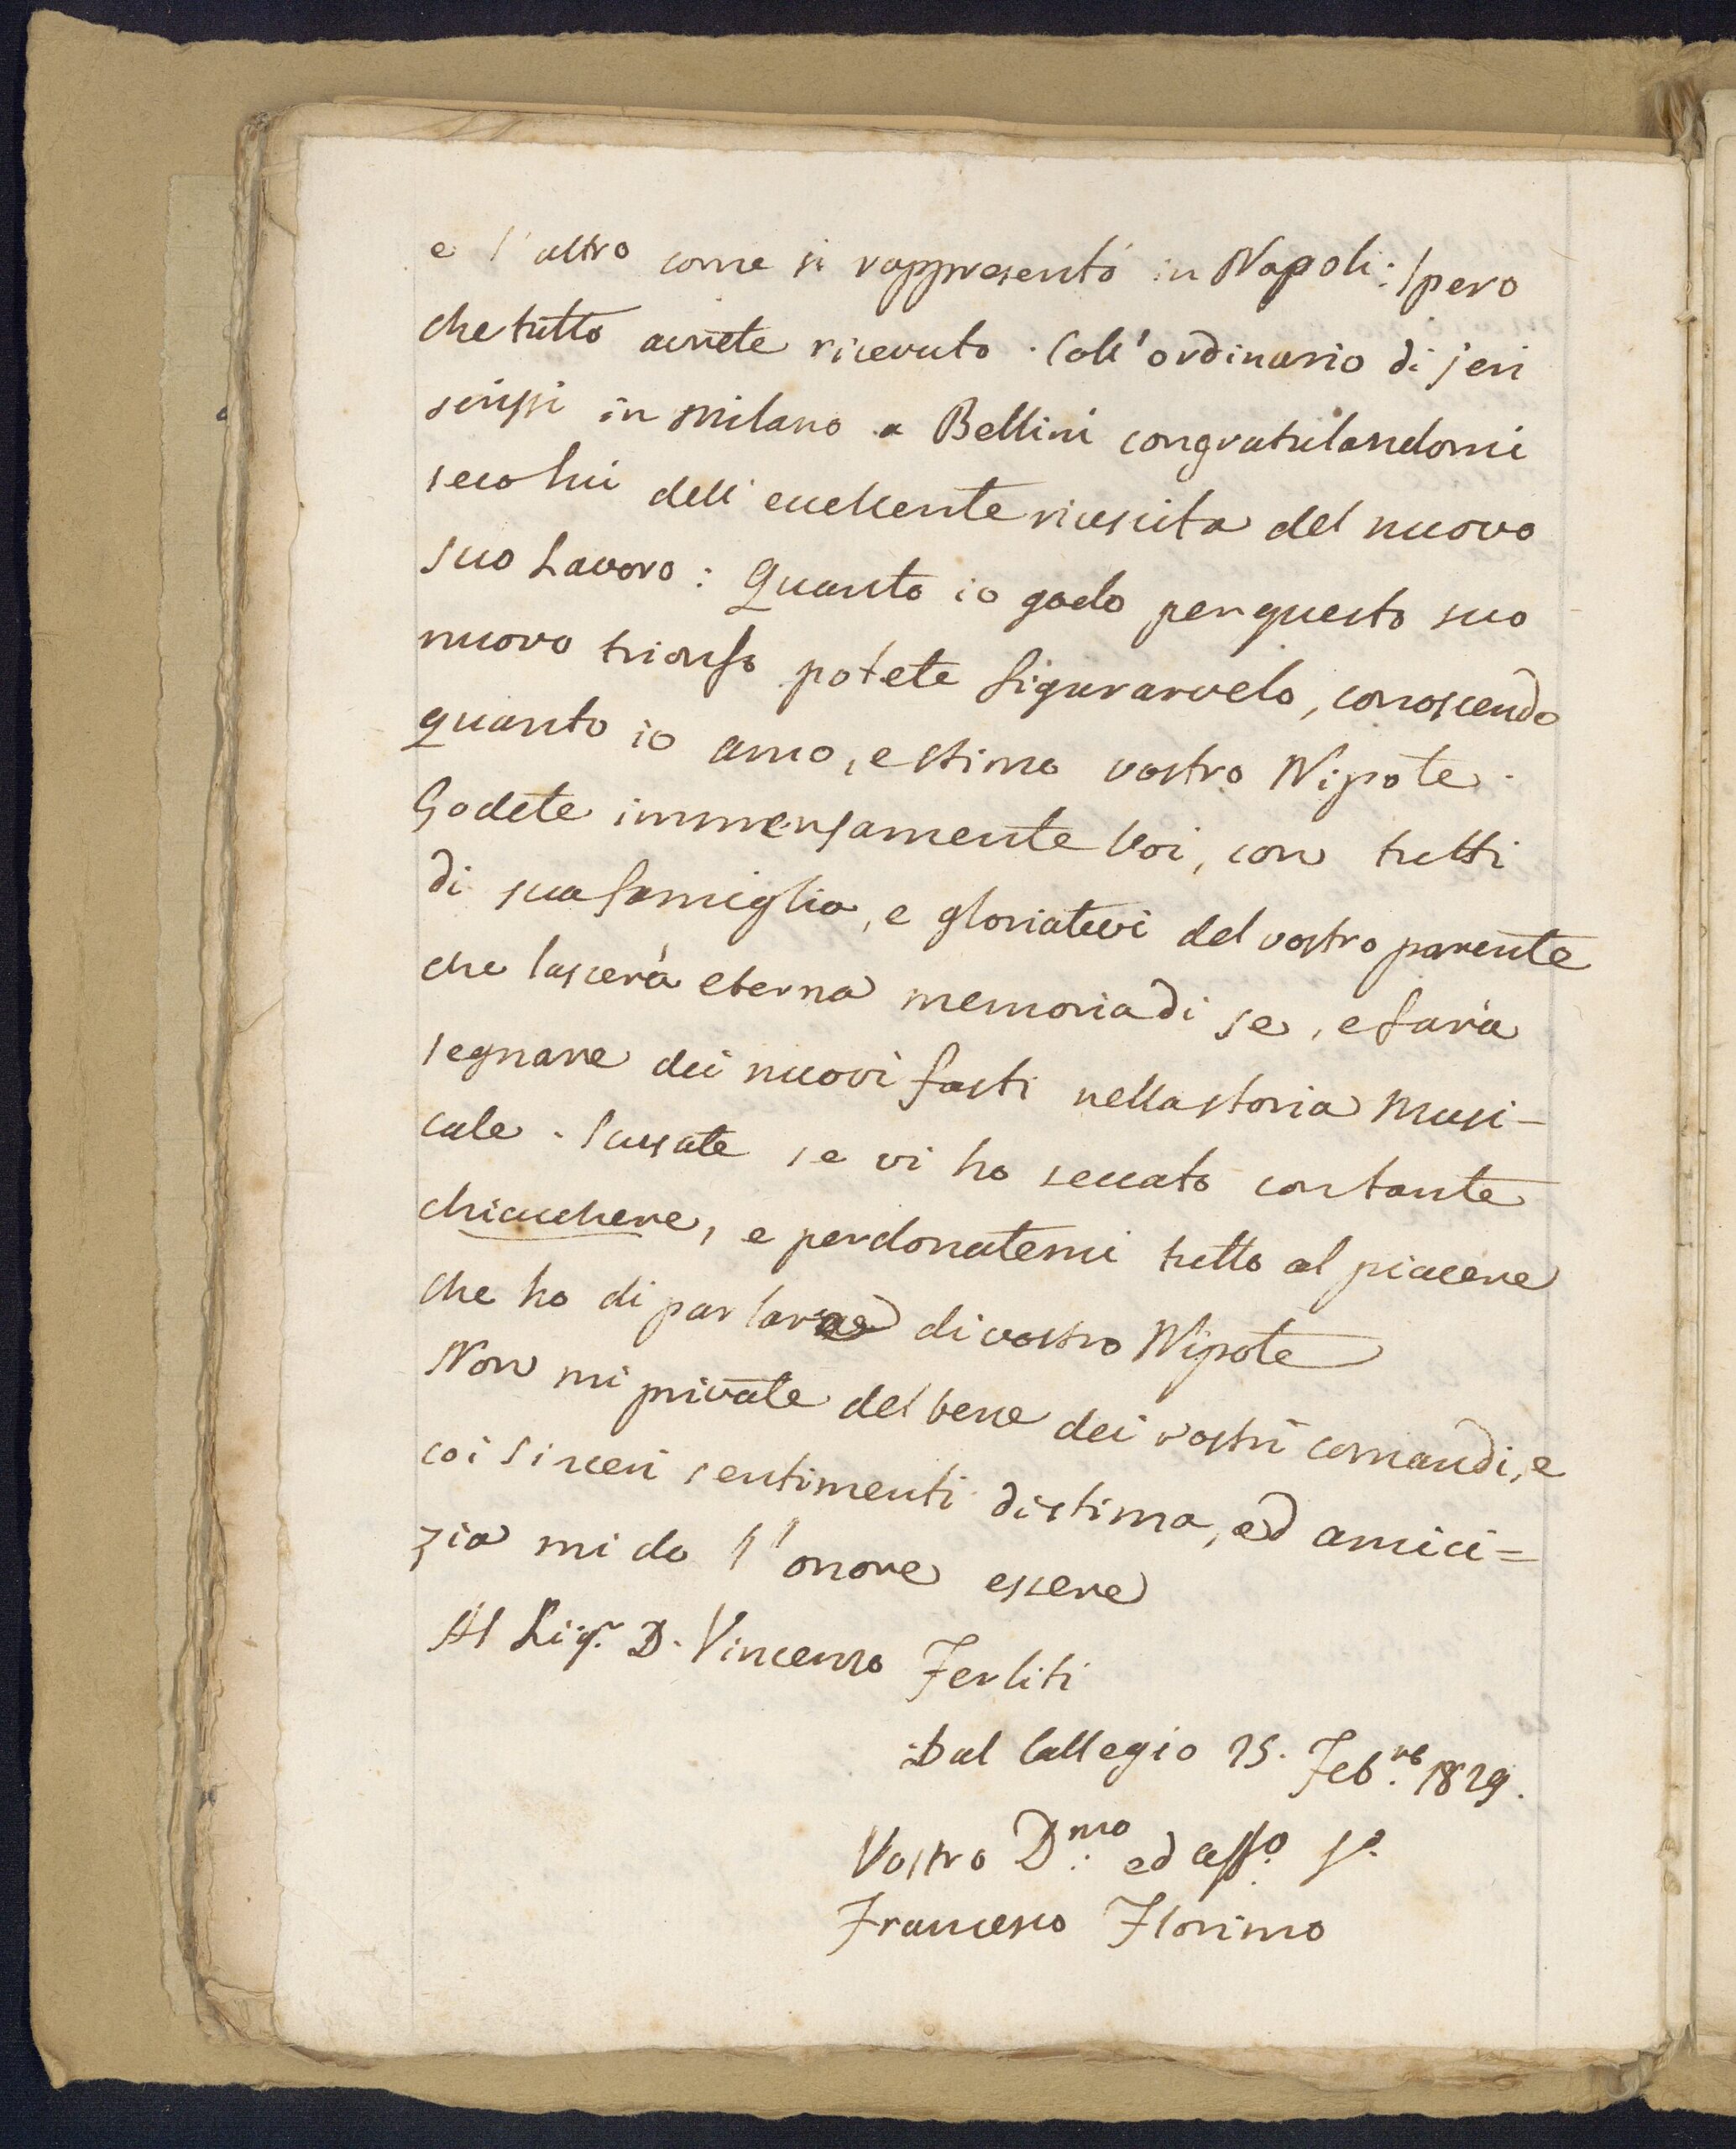 e l'altro come si rappresentò in Napoli: spero
che tutto avrete ricevuto. Coll'ordinario di jeri
scrissi in Milano a Bellini congratulandomi
seco lui dell'eccellente riuscita del nuovo
suo Lavoro: Quanto io godo per questo suo
nuovo trionfo potete figurarvelo, conoscendo
quanto io amo, e stimo vostro Nipote.
Godete immensamente Voi, con tutti
di sua famiglia, e gloriatevi del vostro parente
che lascerà eterna memoria di se, e farà
segnare dei nuovi fasti nella storia Musi-
cale. Scusate se vi ho seccato con tante
chiacchere, e perdonatemi tutto al piacere
che ho di parlare di vostro Nipote
Non mi private del bene dei vostri comandi, e
coi sinceri sentimenti di stima, ed amici=
zia mi do l'onore essere
Al Sig.r D. Vincenzo Ferliti
Dal Collegio 25. Feb.re 1829.
Vostro D.mo ed aff.o S.o
Francesco Florimo